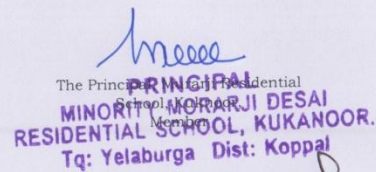 The Principal, Murarji Residential
School, Kukanoor.
Member
PRINCIPAL
MINORITY MORARJI DESAI
RESIDENTIAL SCHOOL, KUKANOOR.
Tq: Yelaburga Dist: Koppal